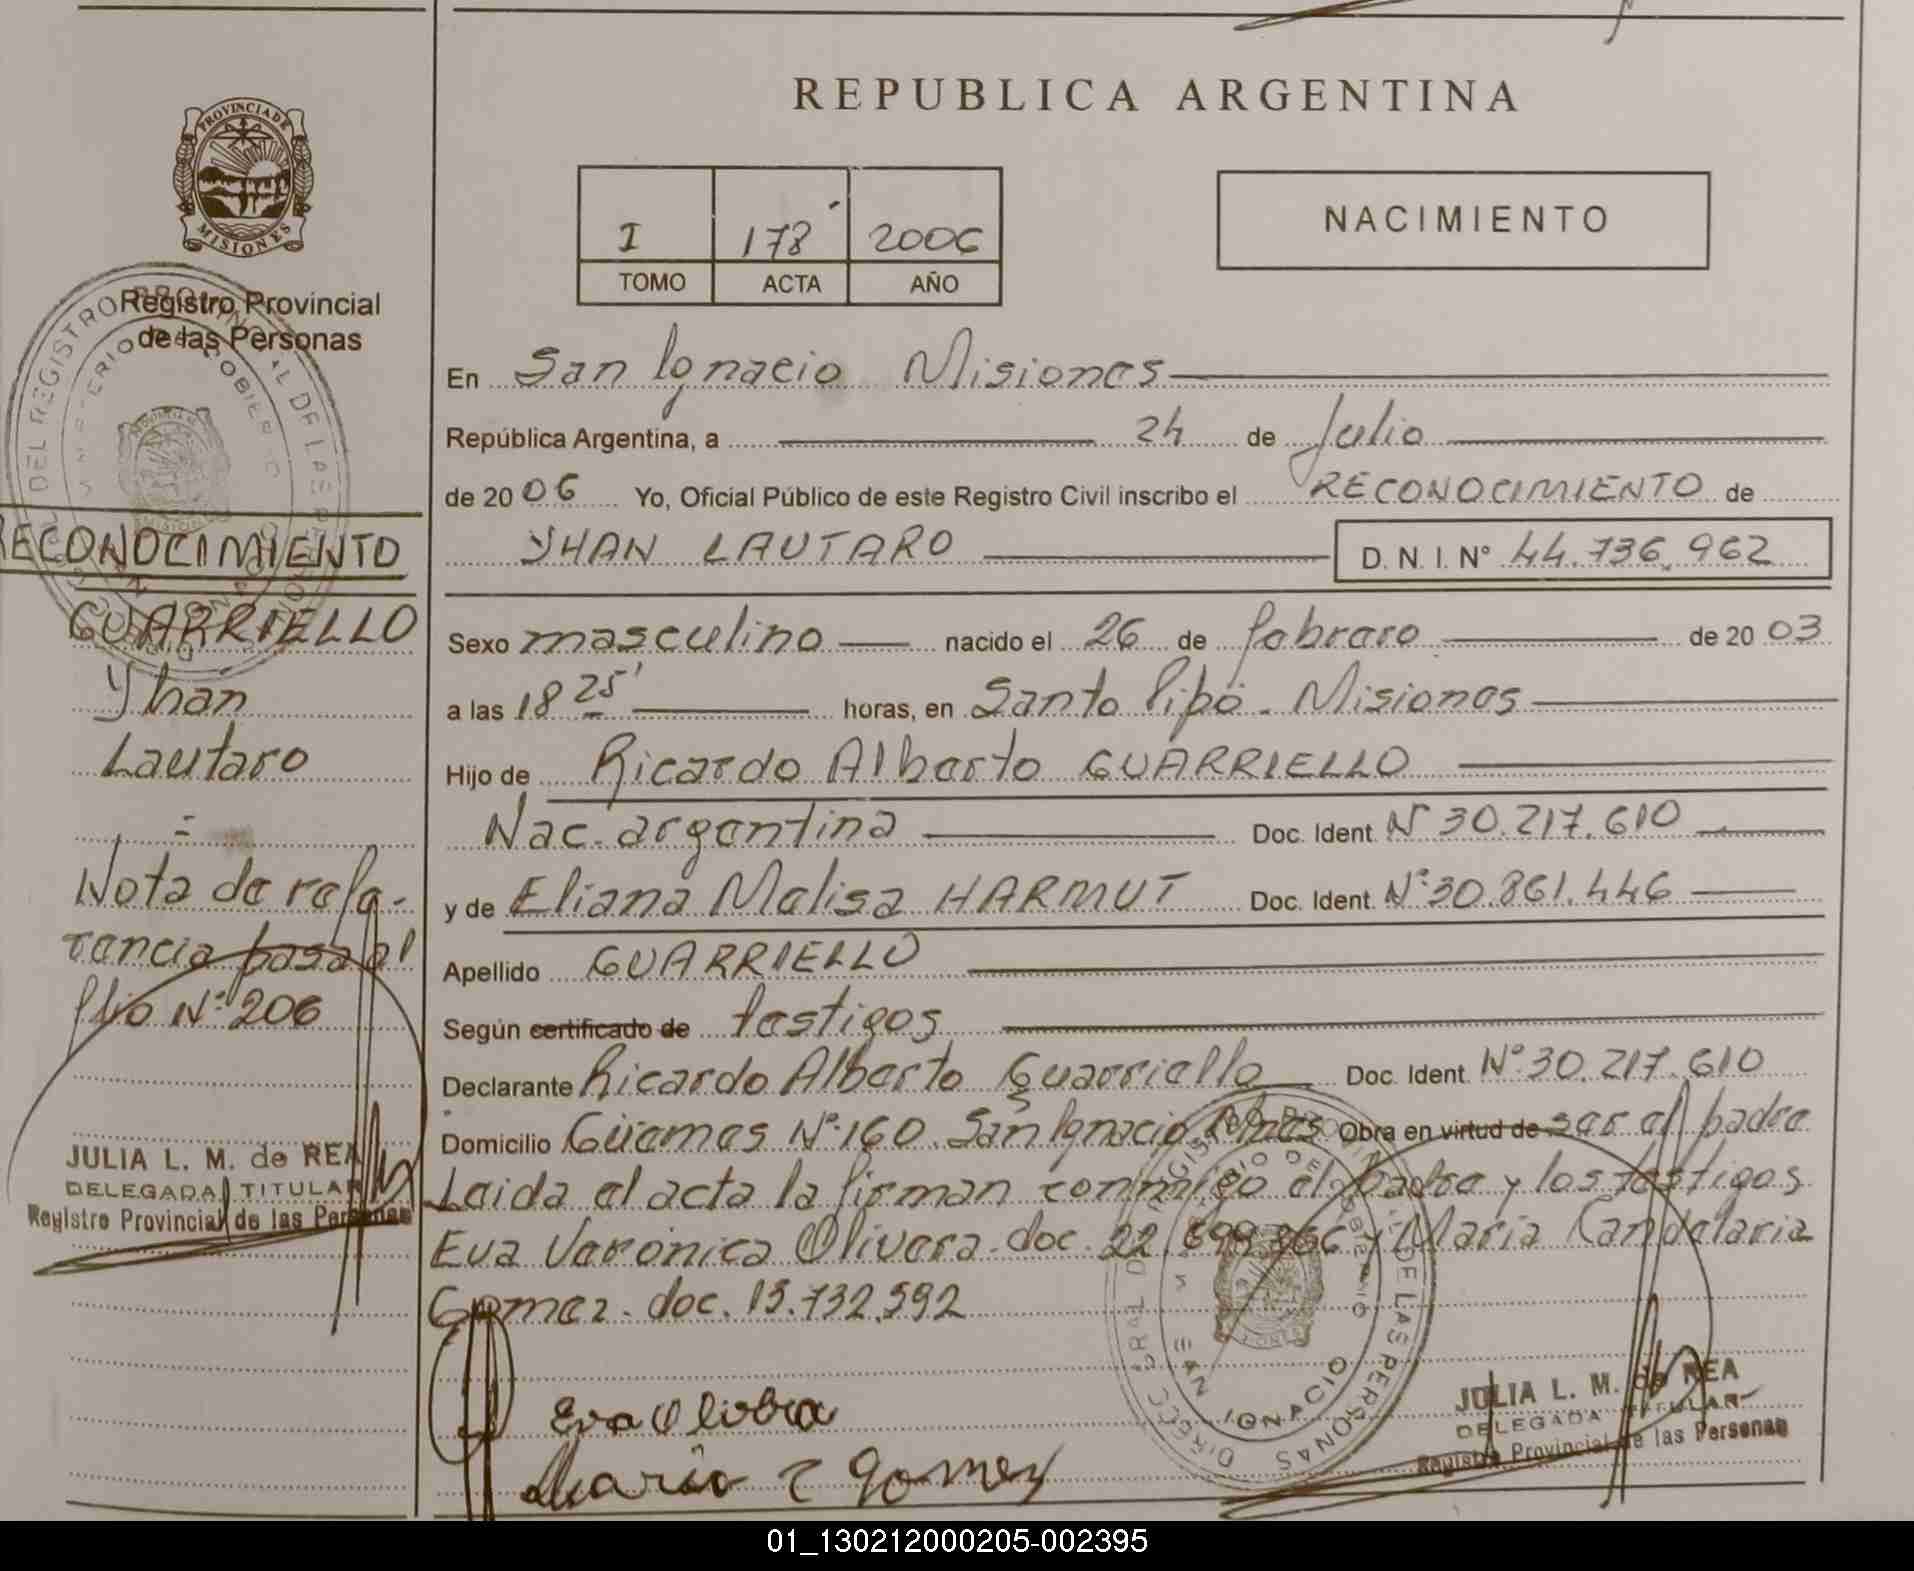 REPUBLICA ARGENTINA
PROVINCIA DE
MISIONES
Registro Provincial
de las Personas
I 178 2006
TOMO ACTA AÑO
NACIMIENTO
En San Ignacio Misiones
República Argentina, a 24 de Julio
de 2006 Yo, Oficial Público de este Registro Civil inscribo el RECONOCIMIENTO de
YHAN LAUTARO D. N. I. N° 44.736.962
Sexo masculino nacido el 26 de febrero de 2003
a las 18 25' horas, en Santo Pipó - Misiones
Hijo de Ricardo Alberto GUARRIELLO
Nac. argentina Doc. Ident. N° 30.217.610
y de Eliana Melisa HARMUT Doc. Ident. N° 30.861.446
Apellido GUARRIELLO
Según certificado de testigos
Declarante Ricardo Alberto Guarriello Doc. Ident. N° 30.217.610
Domicilio Güemes N° 160. San Ignacio. Mnes Obra en virtud de ser el padre
Leida el acta la firman conmigo el padre y los testigos
Eva Verónica Olivera. doc. 22. y María Candelaria
Gomez - doc. 13.732.592
Eva Olivera
Maria C Gomez
JULIA L. M. de REA
DELEGADA TITULAR
Registro Provincial de las Personas
DIRECC GRAL DEL REGISTRO PROVINCIAL DE LAS PERSONAS
MINISTERIO DE GOBIERNO
SAN IGNACIO
RECONOCIMIENTO
GUARRIELLO
Yhan
Lautaro
=
Nota de refe-
rencia pasa al
flio N° 206
JULIA L. M. de REA
DELEGADA TITULAR
Registro Provincial de las Personas
01_130212000205-002395